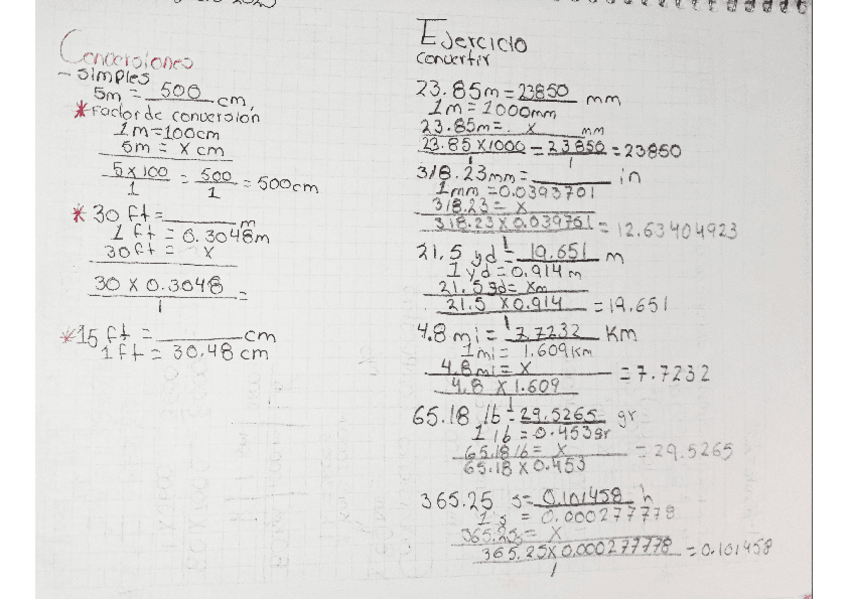 Conversiones
- simples
5m = 500 cm,
* Factor de conversion
1m = 100cm
5m = x cm
5 x 100 = 500 = 500cm
1 1
* 30 ft = ______ m
1 ft = 0.3048m
30 ft = x
30 x 0.3048 =
1
* 15 ft = ______ cm
1 ft = 30.48 cm
Ejercicio
convertir
23.85m = 23850 mm
1m = 1000mm
23.85m = x mm
23.85 x 1000 = 23850 = 23850
1 1
318.23mm = ______ in
1mm = 0.0393701
318.23 = x
318.23 x 0.039761 = 12.63404923
1
21.5 yd = 19.651 m
1 yd = 0.914 m
21.5 yd = xm
21.5 x 0.914 = 19.651
1
4.8 mi = 7.7232 Km
1mi = 1.609Km
4.8mi = x
4.8 x 1.609 = 7.7232
1
65.18 lb = 29.5265 gr
1 lb = 0.453gr
65.18 lb = x
65.18 x 0.453 = 29.5265
365.25 s = 0.101458 h
1 s = 0.000277778
365.25s = x
365.25 x 0.000277778 = 0.101458
1